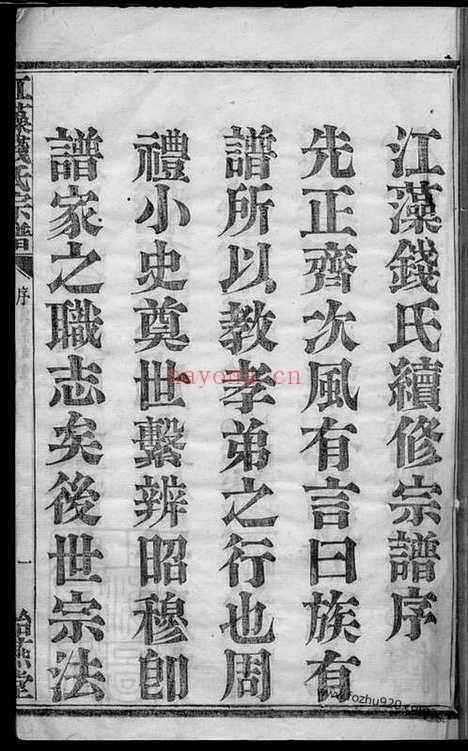 江藻錢氏續修宗譜序
先正齊次風有言曰族有
譜所以教孝弟之行也周
禮小史奠世繫辨昭穆卽
譜家之職志矣後世宗法
江藻錢氏宗譜
序
一
nayona.cn
www.fozhu920.com